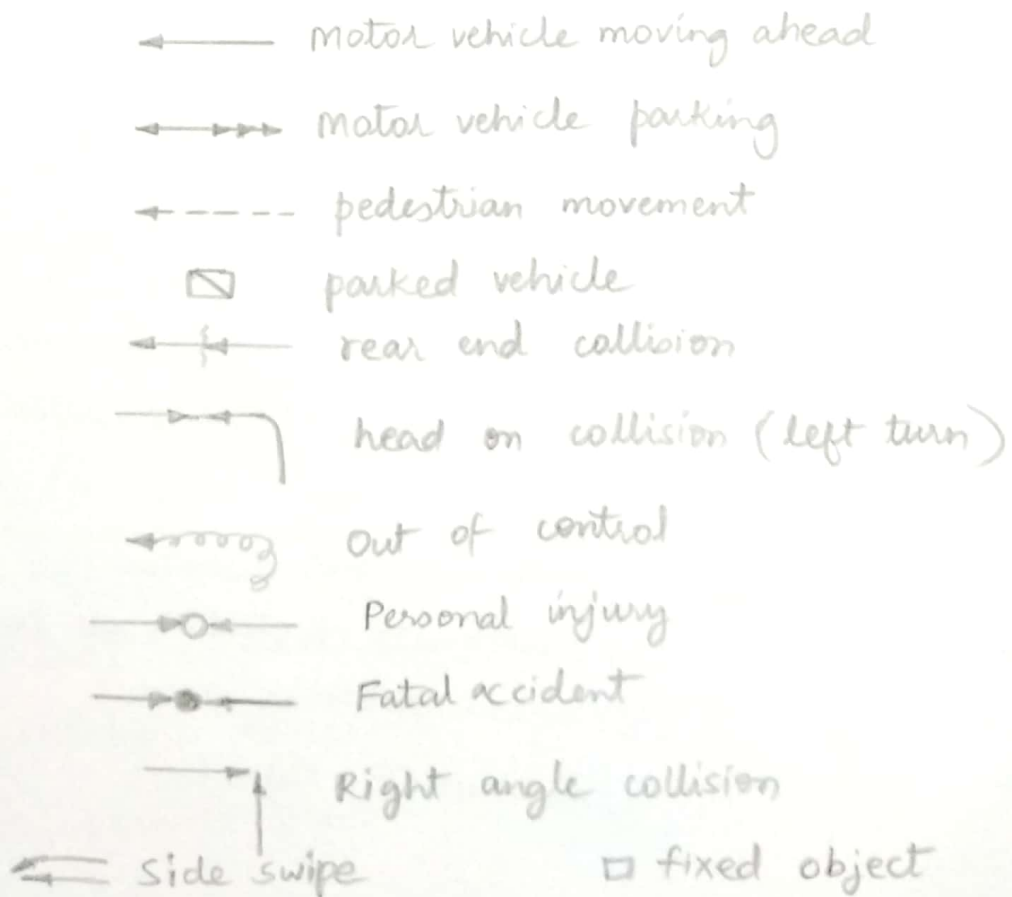 motor vehicle moving ahead
motor vehicle parking
pedestrian movement
parked vehicle
rear end collision
head on collision (left turn)
Out of control
Personal injury
Fatal accident
Right angle collision
Side swipe
fixed object